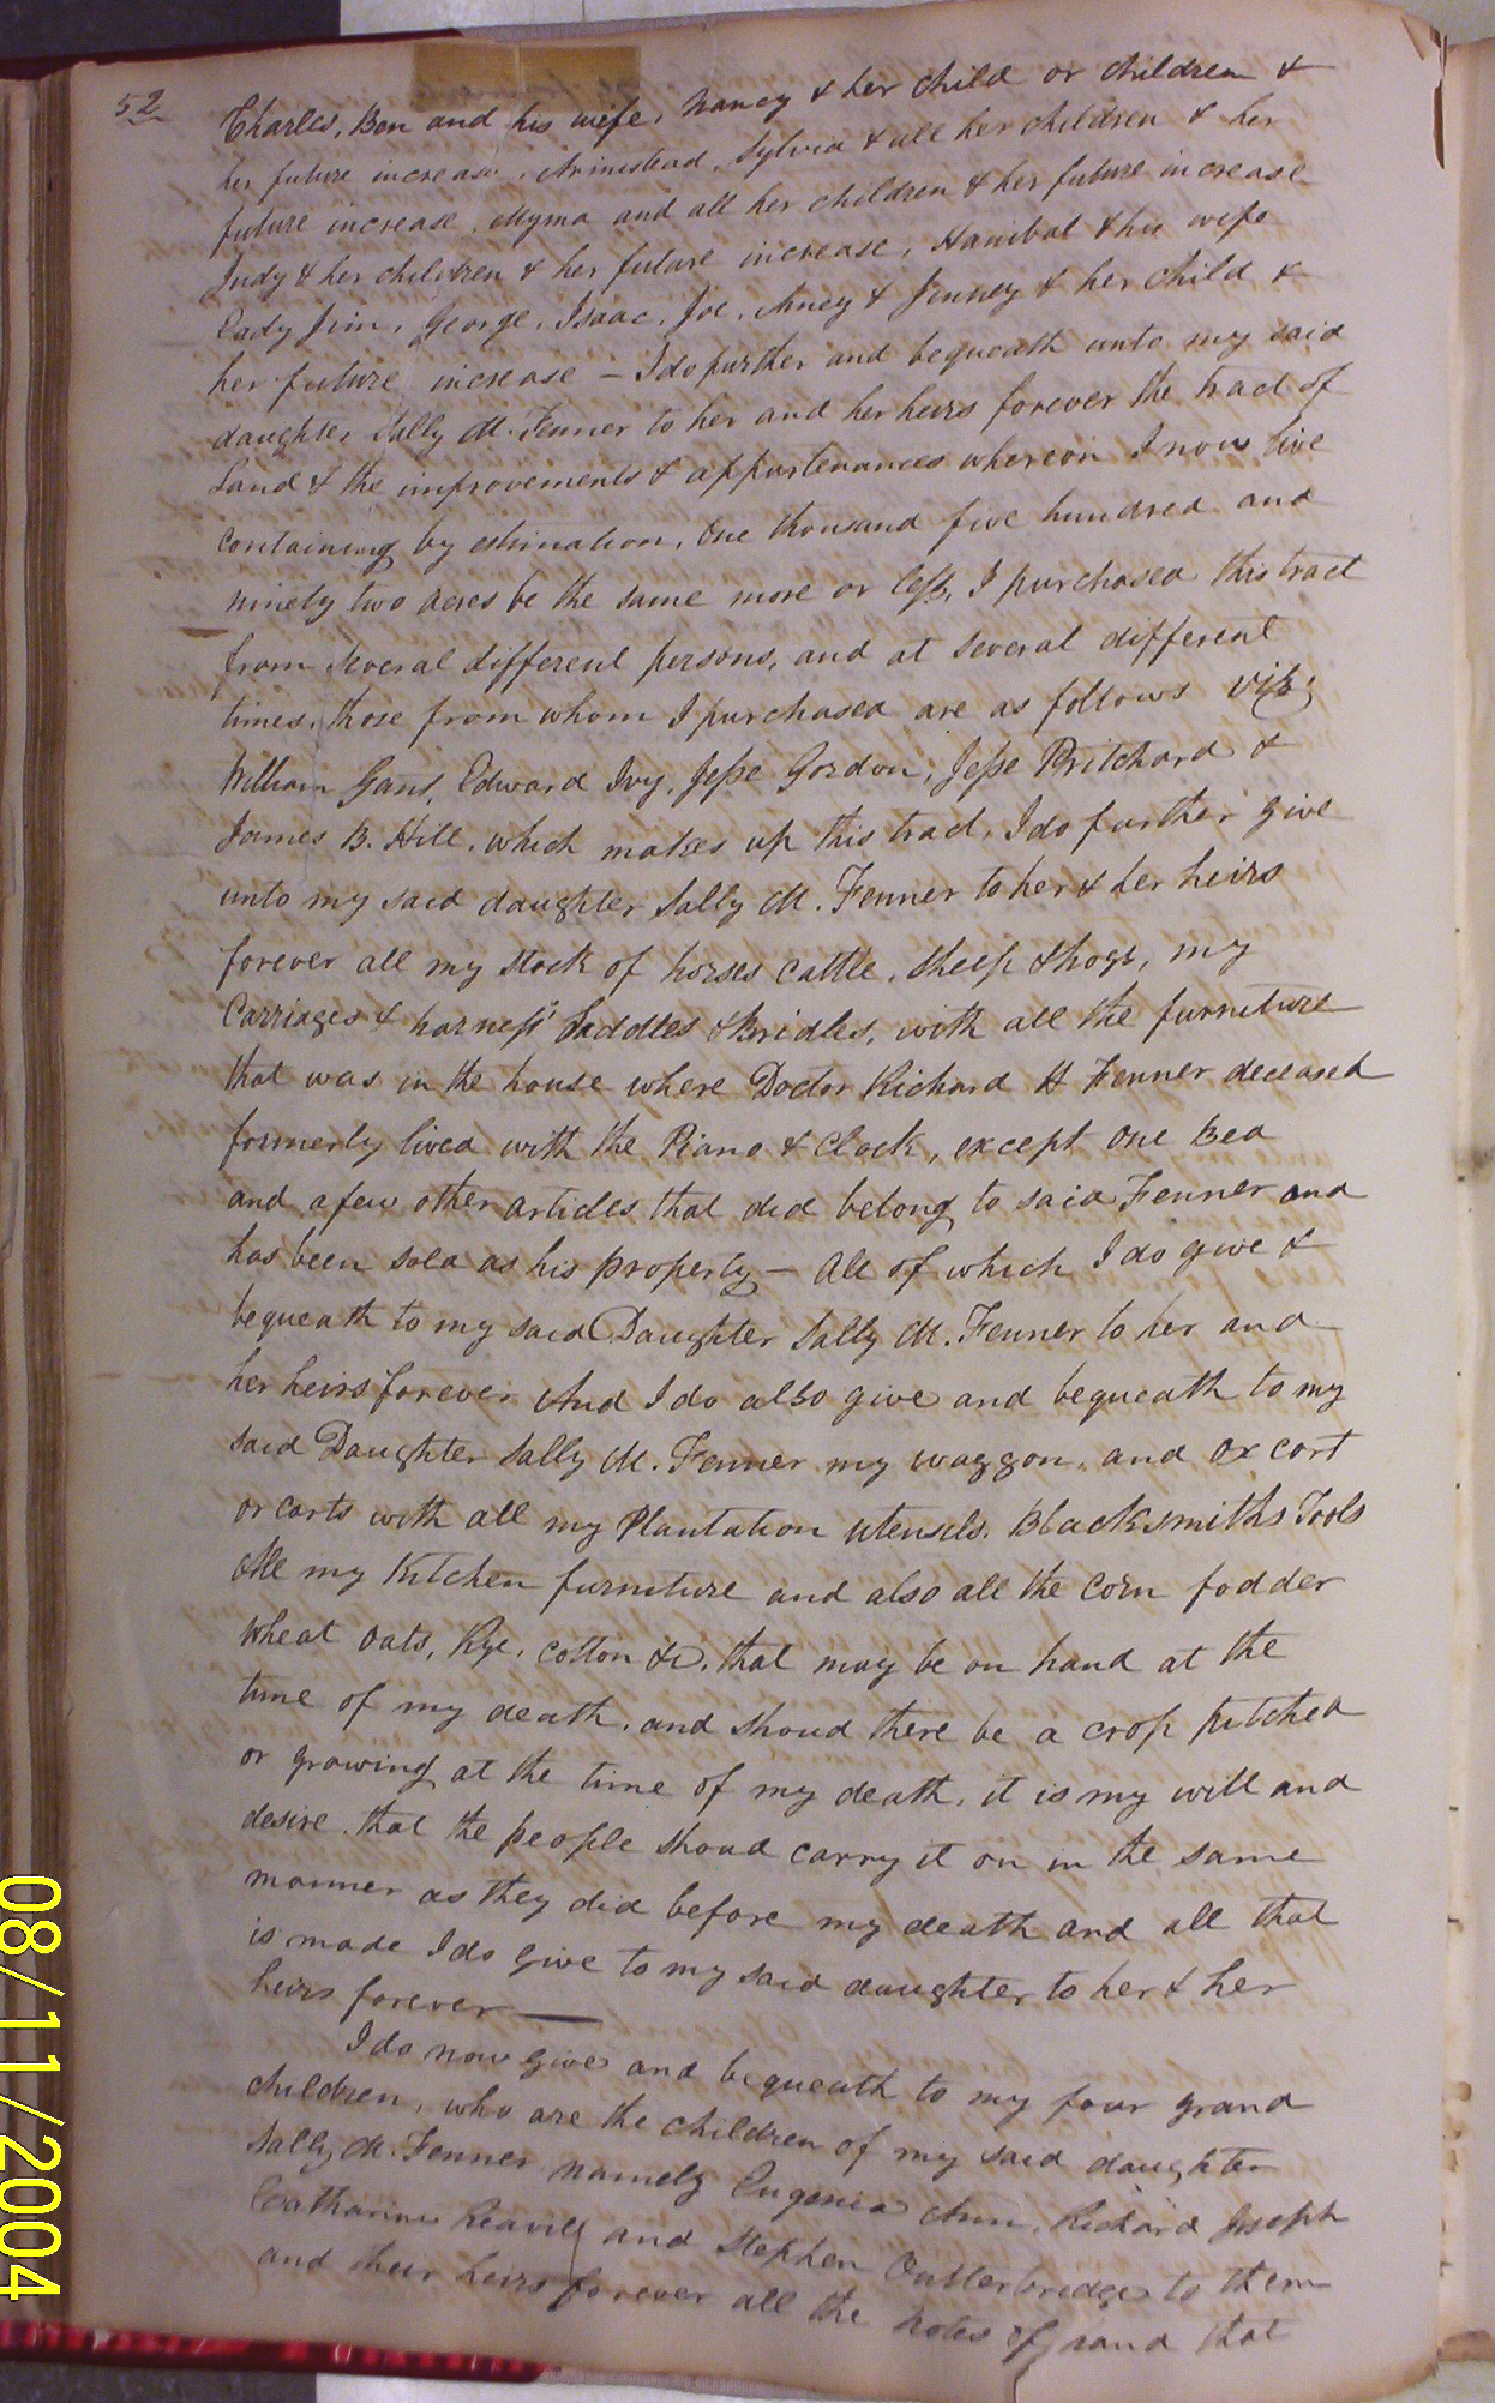 52
Charles, Ben and his wife, Nancy & her child or children &
her future increase, Armistead, Sylvia & all her children & her
future increase, Myma and all her children & her future increase
Judy & her children & her future increase, Hanibal & his wife
Cady Jim, George, Isaac, Joe, Aney & Jinney & her child &
her future increase – I do further and bequeath unto my said
daughter Sally M. Fenner to her and her heirs forever the tract of
Land & the improvements & appurtenances whereon I now live
containing by estimation, One thousand five hundred and
ninety two acres be the same more or less, I purchased this tract
from several different persons, and at several different
times, those from whom I purchased are as follows viz;
William Gans, Edward Ivy, Jesse Gordon, Jesse Pritchard &
James B. Hill, which makes up this tract, I do further give
unto my said daughter Sally M. Fenner to her & her heirs
forever all my stock of horses cattle, sheep & hogs, my
Carriages & harness Saddles & Bridles, with all the furniture
that was in the house where Doctor Richard H Fenner deceased
formerly lived with the Piano & Clock, except one Bed
and a few other articles that did belong to said Fenner and
has been sold as his property – all of which I do give &
bequeath to my said Daughter Sally M. Fenner to her and
her heirs forever And I do also give and bequeath to my
said Daughter Sally M. Fenner my waggon, and ox cart
or carts with all my Plantation utensils. Blacksmiths Tools
All my Kitchen furniture and also all the corn fodder
wheat oats, Rye, cotton &c. that may be on hand at the
time of my death, and shoud there be a crop pitched
or growing at the time of my death, it is my will and
desire, that the people shoud carry it on in the same
manner as they did before my death and all that
is made I do give to my said daughter to her & her
heirs forever —
I do now give and bequeath to my four grand
children, who are the children of my said daughter
Sally M. Fenner namely Eugenia Ann, Richard Joseph
Catharine and Stephen Outterbridge to them
and their heirs forever all the notes of hand that
08/11/2004